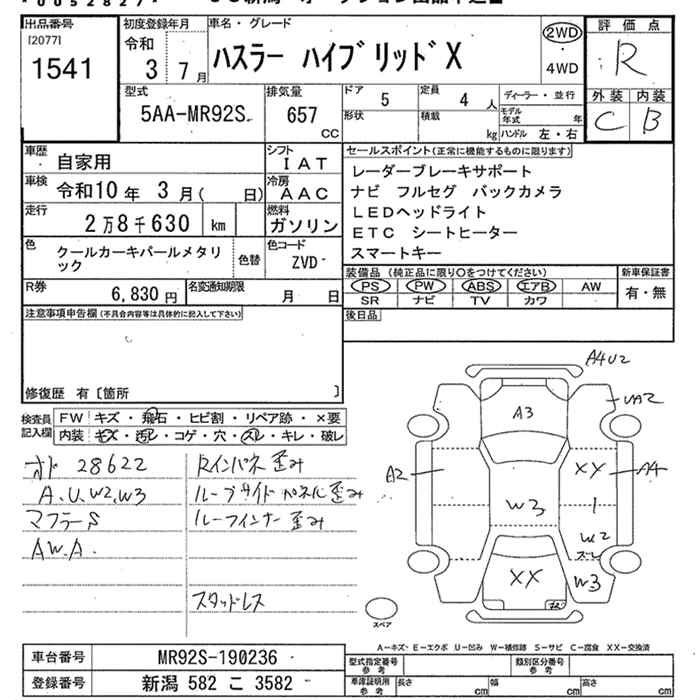 出品番号
[2077]
1541
初度登録年月
令和
3 7 月
車名・グレード
ハスラー ハイブリッドX
2WD
・
4WD
評価点
R
外装 内装
C B
型式
5AA-MR92S
排気量
657
cc
ドア
5
定員
4 人
形状
積載
kg
ディーラー・並行
モデル年式 年
ハンドル 左・右
車歴
自家用
シフト
IAT
車検
令和10 年 3 月( 日)
冷房
AAC
走行
2万8千630 km
燃料
ガソリン
色
クールカーキパールメタリック
色替
色コード
ZVD
R券
6,830 円
名変通知期限
月 日
セールスポイント(正常に機能するものに限ります)
レーダーブレーキサポート
ナビ フルセグ バックカメラ
LEDヘッドライト
ETC シートヒーター
スマートキー
装備品(純正品に限り○をつけてください)
PS PW ABS エアB AW
SR ナビ TV カワ
新車保証書
有・無
後日品
注意事項申告欄(不具合内容等は具体的に記入して下さい)
修復歴 有〔箇所 〕
検査員記入欄
FW キズ・飛石・ヒビ割・リペア跡・×要
内装 キズ・汚レ・コゲ・穴・スレ・キレ・破レ
オド 28622
A.U.W2,W3
マフラーS
AW.A.
Rインパネ歪み
ルーフサイドパネル歪み
ルーフインナー歪み
スタッドレス
A4U2
UA2
A3
A2
XX
A4
W3
1
W2
スレ
XX
W3
スペア
A-キズ、E-エクボ U-凹み W-補修跡 S-サビ C-腐食 XX-交換済
車台番号
MR92S-190236
登録番号
新潟 582 こ 3582
型式指定番号
参考
類別区分番号
参考
車庫証明用
参考
長さ cm
幅 cm
高さ cm